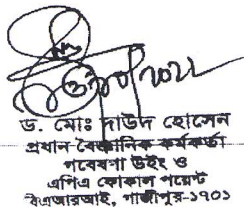 ড. মোঃ দাউদ হোসেন
প্রধান বৈজ্ঞানিক কর্মকর্তা
গবেষণা উইং ও
এপিএ ফোকাল পয়েন্ট
বিএআরআই, গাজীপুর-১৭০১